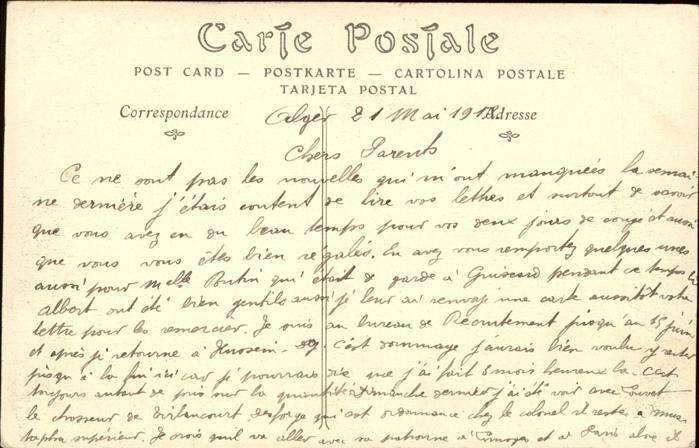 Carte Postale
POST CARD — POSTKARTE — CARTOLINA POSTALE
TARJETA POSTAL
Correspondance
Adresse
Alger 21 Mai 1918
Chers Parents
Ce ne sont pas les nouvelles qui m'ont manquées la semai-
ne dernière j'étais content de lire vos lettres et surtout de savoir
que vous avez eu du beau temps pour vos deux jours de congé et aussi
que vous vous êtes bien régalés. En avez vous remportez quelques unes
aussi pour Melle Butin qui était de garde à Guiscard pendant ce temps les
Albert ont été bien gentils aussi j'leur ai renvoyé une carte aussitôt votre
lettre pour les remercier. Je suis au bureau de Recrutement jusqu'au 15 juin
et après je retourne à Hussein-dey. C'est dommage j'aurais bien voulu y rester
jusqu'à la fin ici car je pourrais dire que j'ai fait 6 mois heureux là. C'est
toujours autant de pris sur la quantité. Dimanche dernier j'ai été voir avec
le chasseur de qui est ordonnance chez le colonel il reste à Mus-
tapha supérieur. Je crois qu'il va aller avec sa patronne à Limoges et à Paris alors il